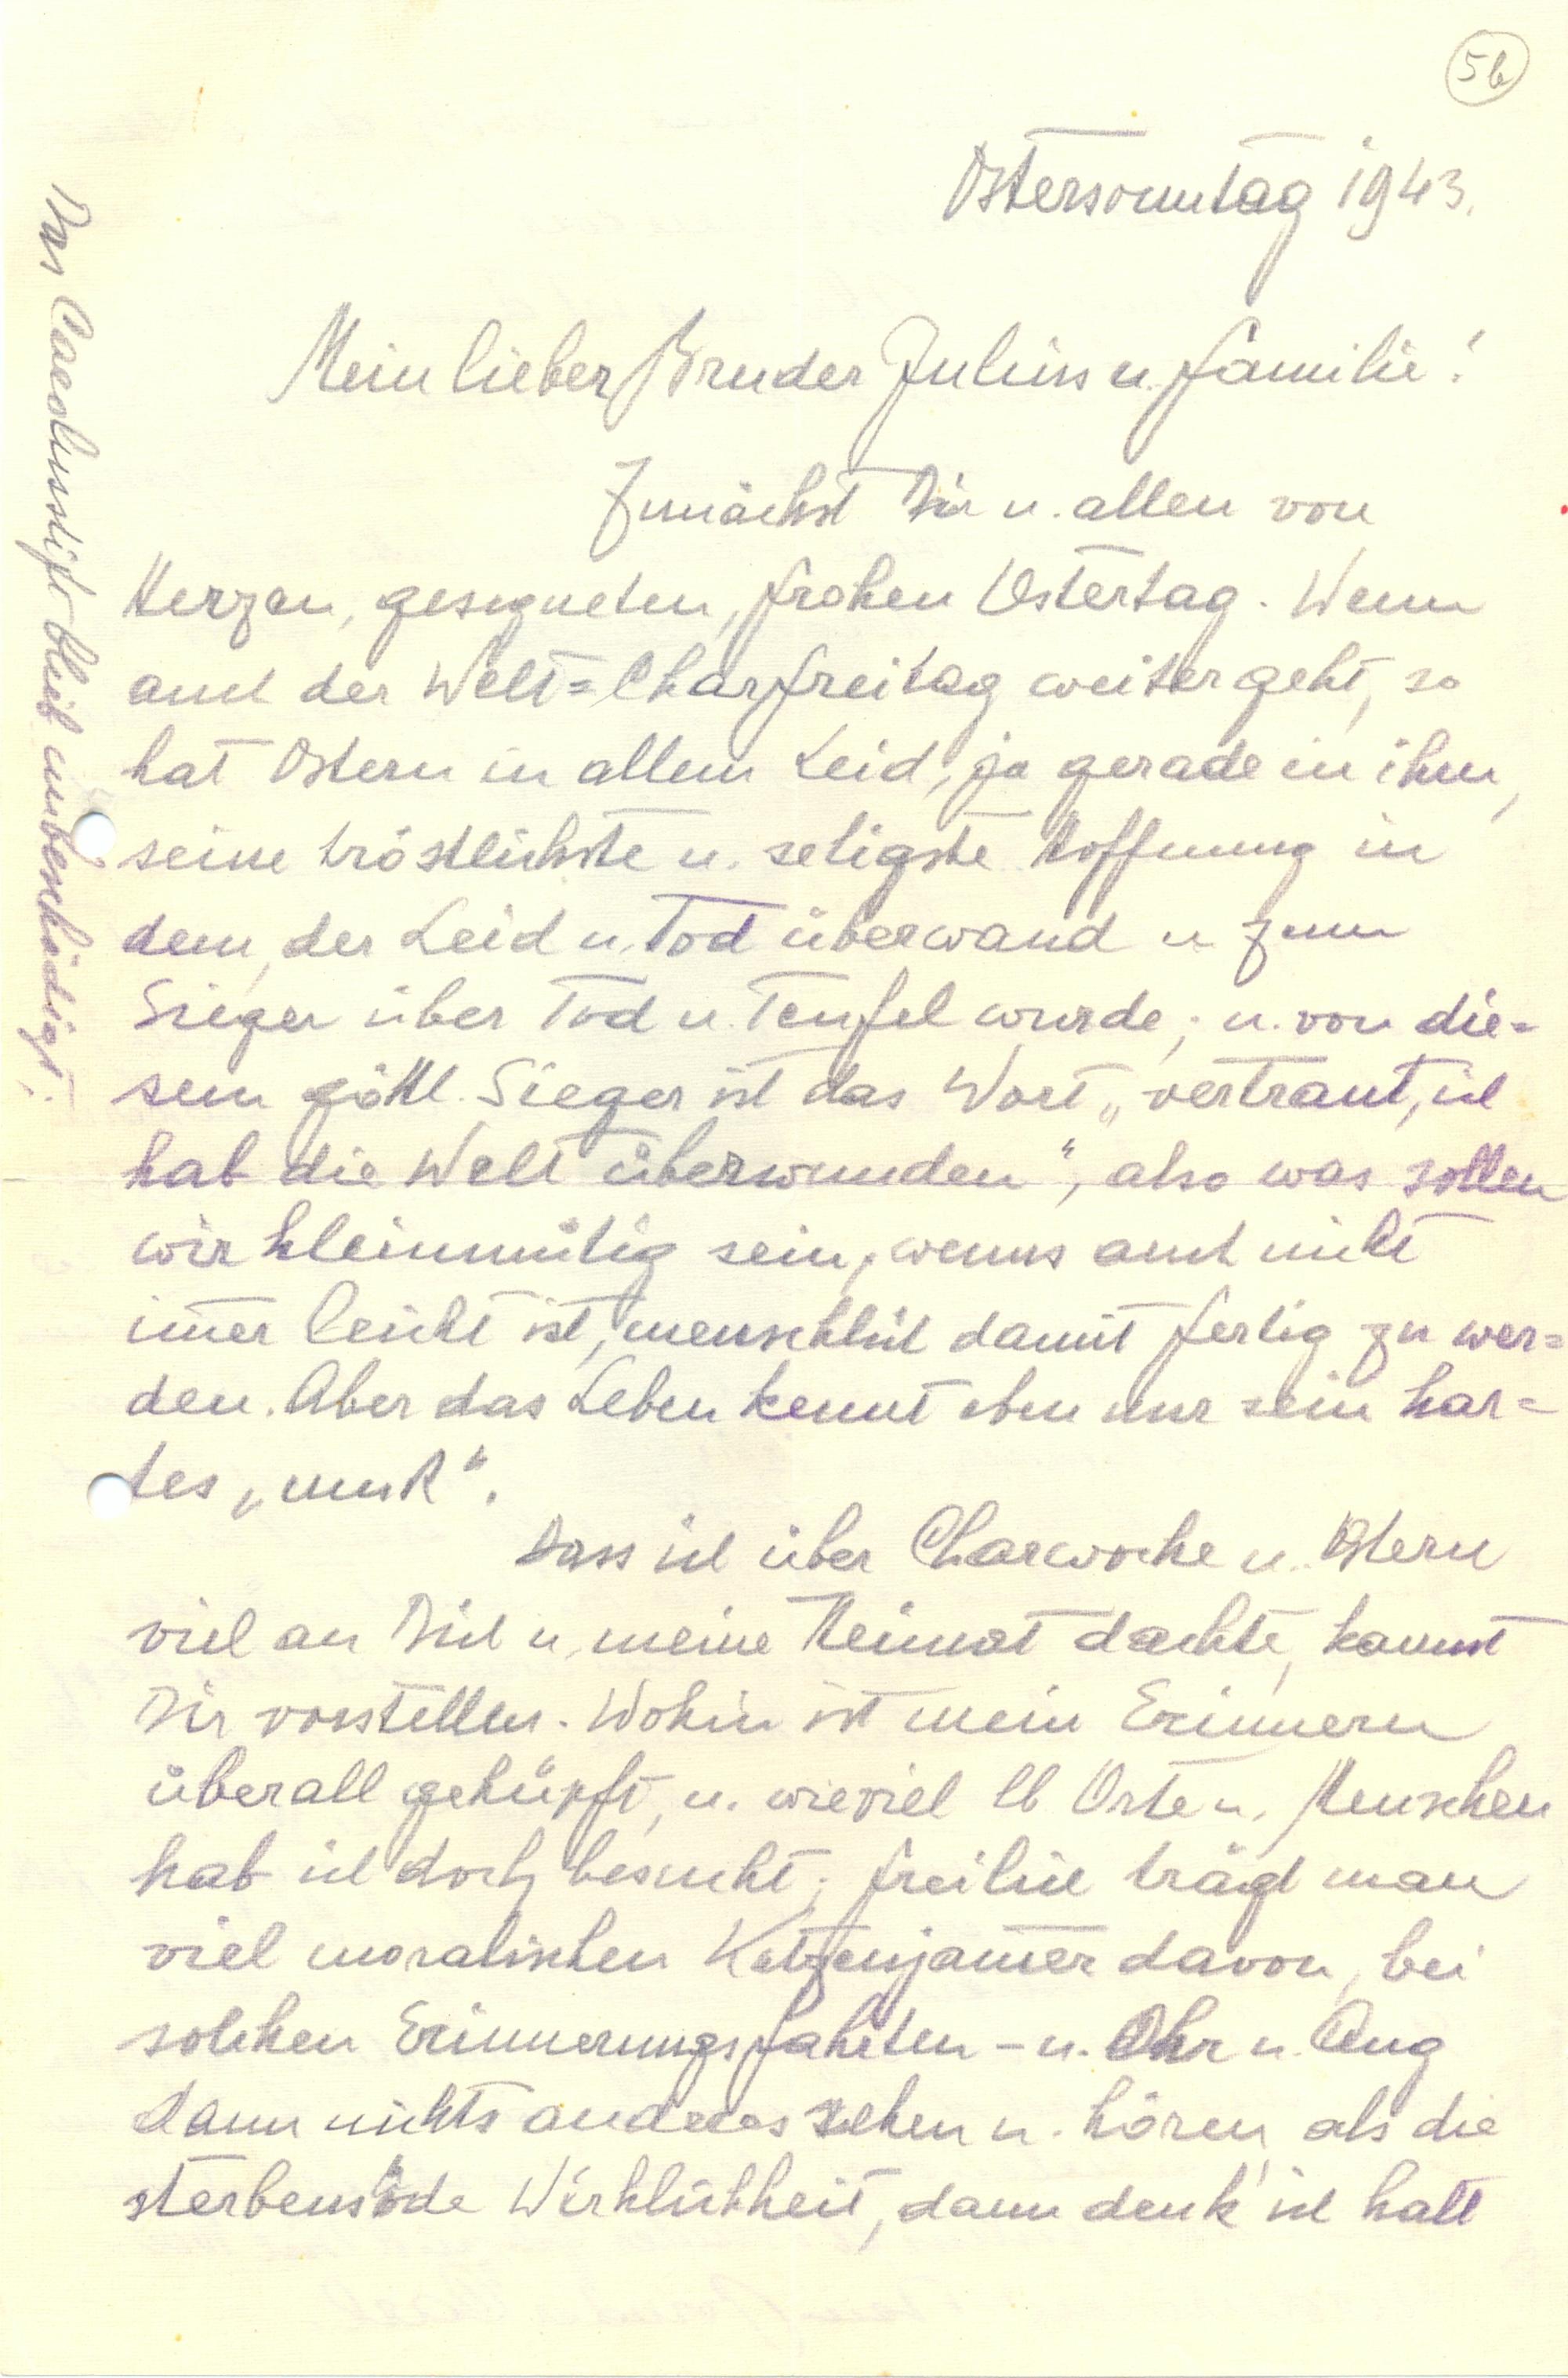 5b
Ostersonntag 1943.
Mein lieber Bruder Julius u. Familie!
Zunächst Dir u. allen von
Herzen, gesegneten, frohen Ostertag. Wenn
auch der Welt=Charfreitag weitergeht, so
hat Ostern in allem Leid, ja gerade in ihm,
seine tröstlichste u. seligste Hoffnung in
dem, der Leid u. Tod überwand u zum
Sieger über Tod u. Teufel wurde; u. von die=
sem göttl. Sieger ist das Wort „vertraut, ich
hab die Welt überwunden“, also was sollen
wir kleinmütig sein, wenns auch nicht
im̅er leicht ist, menschlich damit fertig zu wer=
den. Aber das Leben kennt eben nur sein har=
tes „muß“.
Dass ich über Charwoche u. Ostern
viel an Dich u. meine Heimat dachte, kannst
Dir vorstellen. Wohin ist mein Erinnern
überall gehüpft, u. wieviel lb Orte u. Menschen
hab ich doch besucht; freilich trägt man
viel moralischen Katzenjam̅er davon, bei
solchen Erinnerungsfahrten - u. Ohr u. Aug
dann nichts anderes sehen u. hören, als die
sterbensöde Wirklichkeit, dann denk' ich halt
Das Carolusstift bleib unbeschädigt!